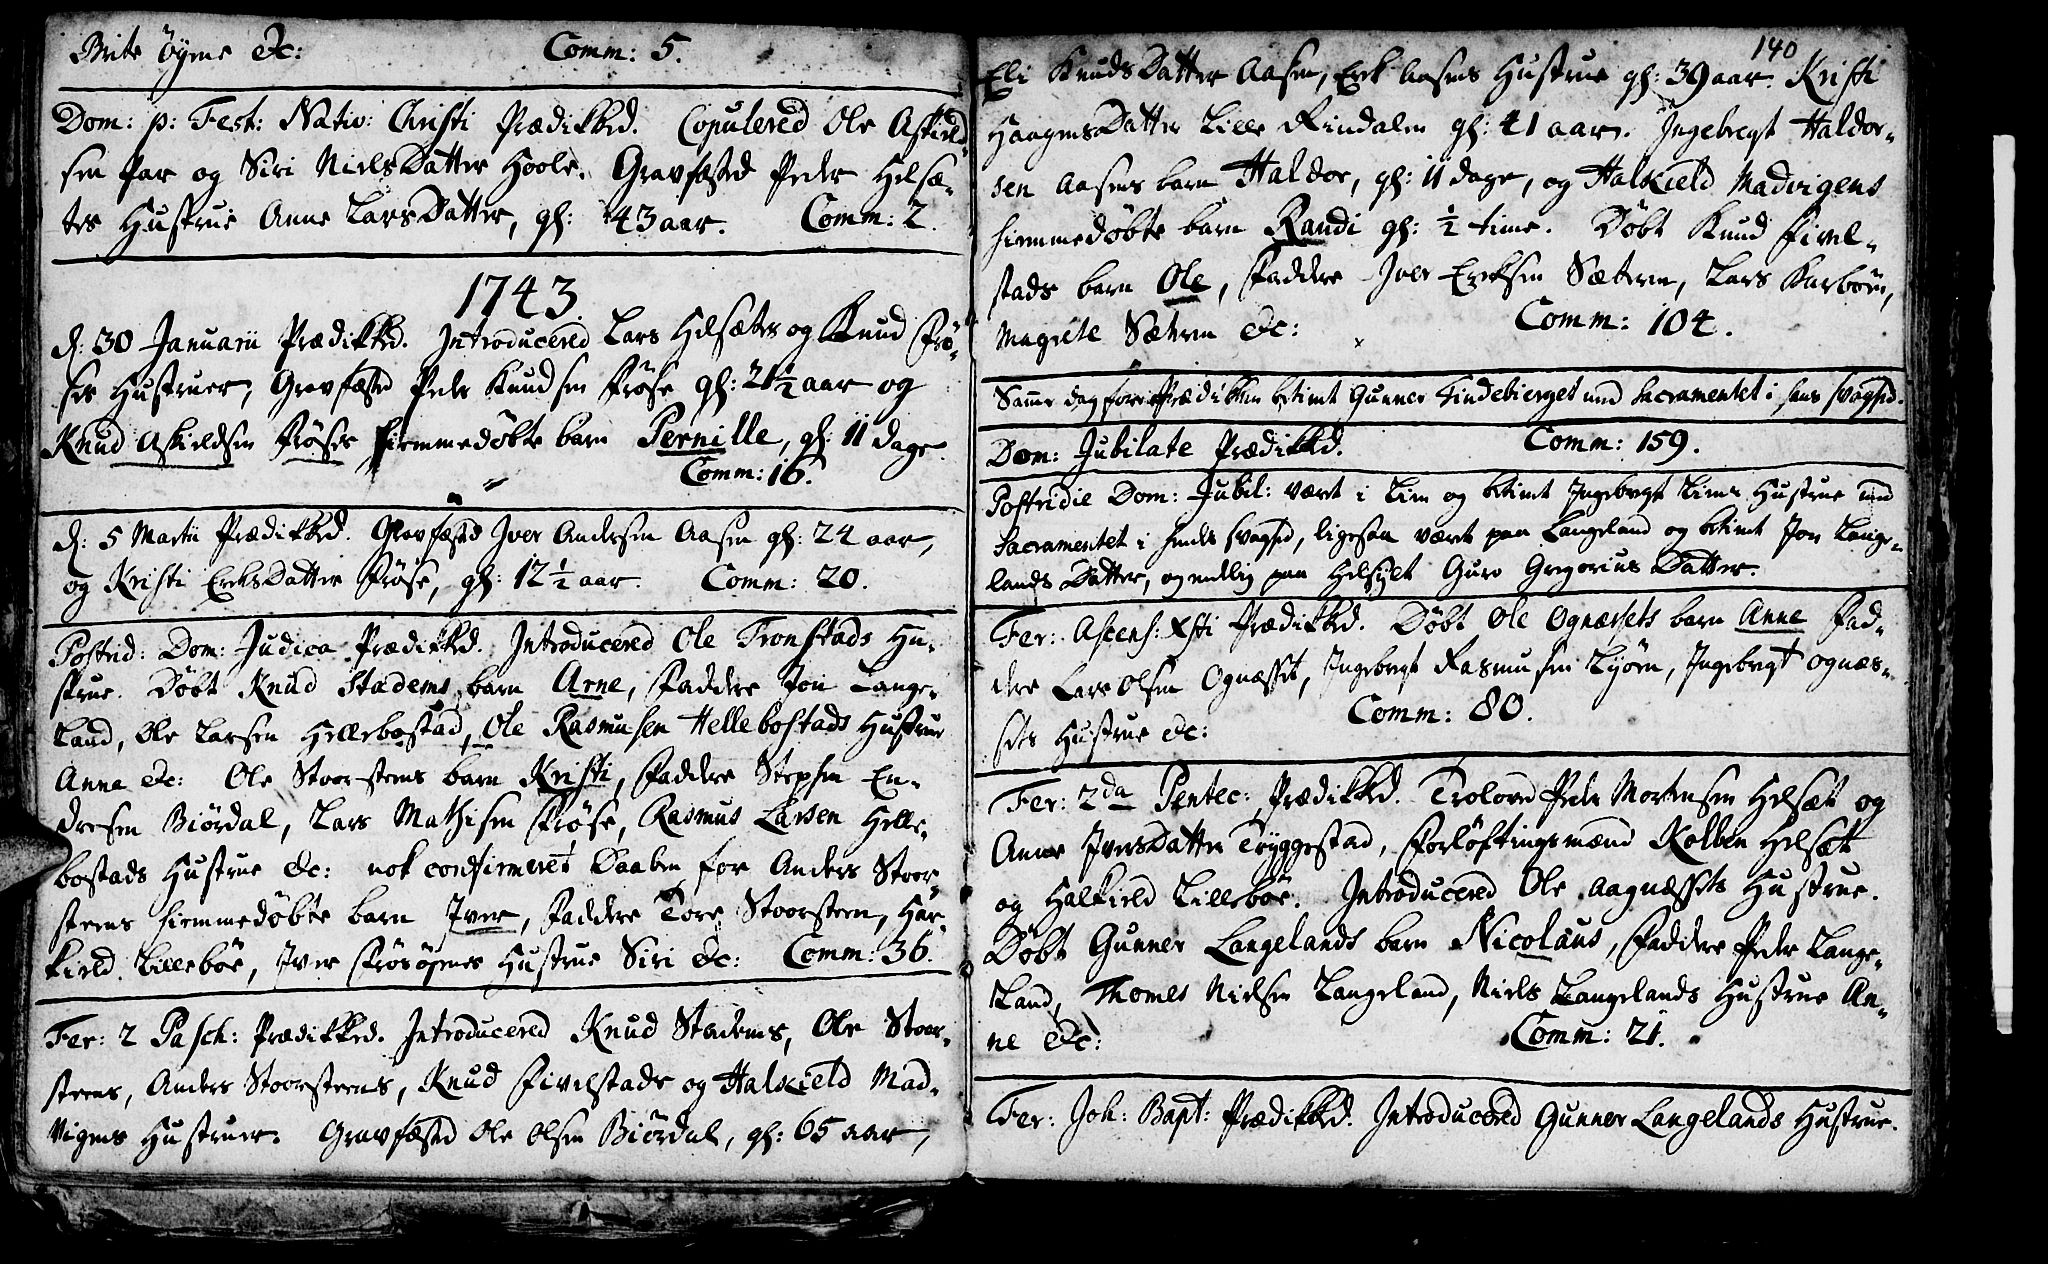 Brite Öyene &c: Comm: 5.
Dom: p: Fest: Nativ: Christi Prædikked. Copulered Ole Askield-
sen og Siri NielsDatter Hoole. Gravfæsted Peder Helsæ-
ters Hustrue Anne LarsDatter, gl: 43 aar. Comm: 2.
1743
d: 30 Januarii Prædikked. Introducered Lars Helsæters og Knud Frö-
ses Hustruer, Gravfæsted Peder Knudsen Fröse gl: 21½ aar og
Knud Askieldsen Fröses hiemmedöbte barn Pernille, gl: 11 dage.
Comm: 16.
d: 5 Martii Prædikked. Gravfæsted Iver Andersen Aasen gl: 24 aar,
og Kristi ErichsDatter Fröse, gl: 12½ aar. Comm: 20.
Postrid: Dom: Judica Prædikked. Introducered Ole Tronstads Hu-
strue. Döbt Knud Stadems barn Arne, Faddere Jon Lange-
land, Ole Larsen Hellebostad, Ole Rasmusen Hellebostads Hustrue
Anne &c: Ole Stoorsteens barn Kristi, Faddere Stephen En-
dresen Biördal, Lars Mathisen Fröse, Rasmus Larsen Helle-
bostads Hustrue &c: nok confirmeret Daaben for Anders Stoor-
steens hiemmedöbte barn Iver, Faddere Tore Stoorsteen, Hal-
kield Lilleböe, Iver Frösöynes Hustrue Siri &c: Comm: 36.
Fer: 2 Pasch: Prædikked. Introducered Knud Stadems, Ole Stoor-
steens, Anders Stoorsteens, Knud Fivelstads og Halkield Mad-
vigens Hustruer. Gravfæsted Ole Olsen Biördal, gl: 65 aar,
140
Eli KnudsDatter Aasen, Erik Aasens Hustrue gl: 39 aar. Kristi
HaagensDatter Lille Rindalen gl: 41 aar. Ingebregt Haldor-
sen Aasens barn Haldor, gl: 11 dage, og Halkield Madvigens
hiemmedöbte barn Randi gl: ½ time. Döbt Knud Fivel-
stads barn Ole, Faddere Iver Ericksen Sæteren, Lars Karböen,
Magrete Sæteren &c: Comm: 104.
Samme dag for Prædiken betient Gunner Tindebierget med Sacramentet i hans svaghed.
Dom: Jubilate Prædikked. Comm: 159.
Postridie Dom: Jubil: været i Liem og betient Ingebregt Liems Hustrue med
Sacramentet i hendes svaghed, ligesaa været paa Langeland og betient Jon Lange-
lands Datter, og endelig paa Helsylt Guro Gregorius Datter.
Fer: Ascens: Xsti Prædikked. Döbt Ole Ognæssets barn Anne Fad-
dere Lars Olsen Ognæsset, Ingebregt Rasmusen Lyören, Ingebregt Ognæs-
sets Hustrue &c: Comm: 80.
Fer: 2da Pentec: Prædikked. Troloved Peder Mortensen Helsæt og
Anne IversDatter Tryggestad, Forlöftingsmænd Kolben Helsæt
og Halkield Lilleböe. Introducered Ole Aagnæssets Hustrue.
Döbt Gunner Langelands barn Nicolaus, Faddere Peder Lange-
land, Thomes Nielsen Langeland, Niels Langelands Hustrue An-
ne &c: Comm: 21.
Fer: Joh: Bapt: Prædikked. Introducered Gunner Langelands Hustrue.